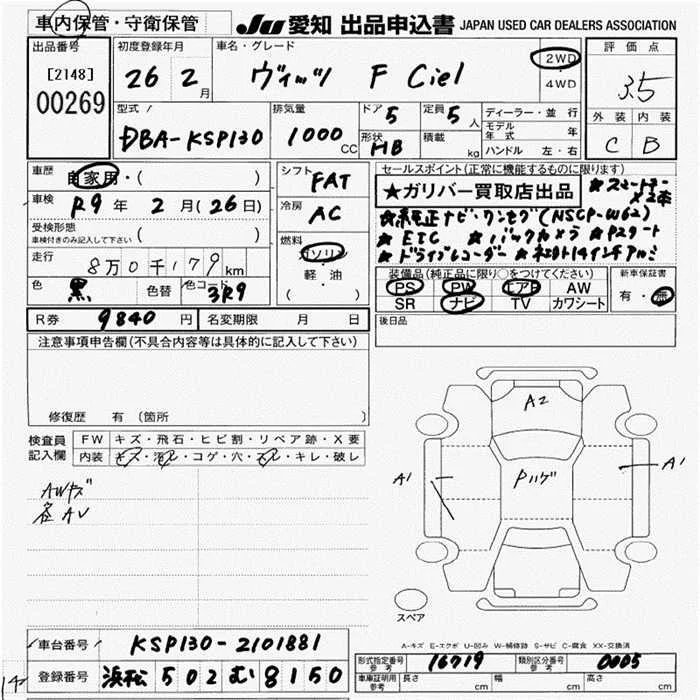 車内保管・守衛保管
JU 愛知 出品申込書 JAPAN USED CAR DEALERS ASSOCIATION
出品番号
[2148]
00269
初度登録年月
26 2月
車名・グレード
ヴィッツ F Ciel
2WD
4WD
評価点
3.5
外装 内装
C B
型式
DBA-KSP130
排気量
1000 CC
ドア 5
形状 HB
定員 5人
積載 kg
ディーラー・並行
モデル年式 年
ハンドル 左・右
車歴
自家用・( )
車検
R9年 2月(26日)
受検形態
車検付きのみ記入して下さい ( )
走行
8万0千179km
色 黒 色替 色コード 3R9
シフト
FAT
冷房
AC
燃料
ガソリン
軽・油
( )
セールスポイント(正常に機能するものに限ります)
★ガリバー買取店出品 ★スマートキー×2本
★純正ナビ・ワンセグ(NSCP-W62)
★ETC ★バックカメラ ★Pスタート
★ドライブレコーダー ★社外14インチアルミ
装備品(純正品に限り○をつけてください)
PS PW エアB AW
SR ナビ TV カワシート
新車保証書
有・無
R券 9840円 名変期限 月 日
後日品
注意事項申告欄(不具合内容等は具体的に記入して下さい)
修復歴 有 (箇所 )
検査員記入欄
FW キズ・飛石・ヒビ割・リペア跡・X要
内装 キズ・汚レ・コゲ・穴・スレ・キレ・破レ
AWキズ
A2
A1
Pハゲ
A1
スペア
A-キズ E-エクボ U-凹み W-補修跡 S-サビ C-腐食 XX-交換済
車台番号 KSP130-2101881
登録番号 浜松 502 む 8150
型式指定番号 参考 16719 類別区分番号 参考 0005
車庫証明用 参考 長さ cm 幅 cm 高さ cm